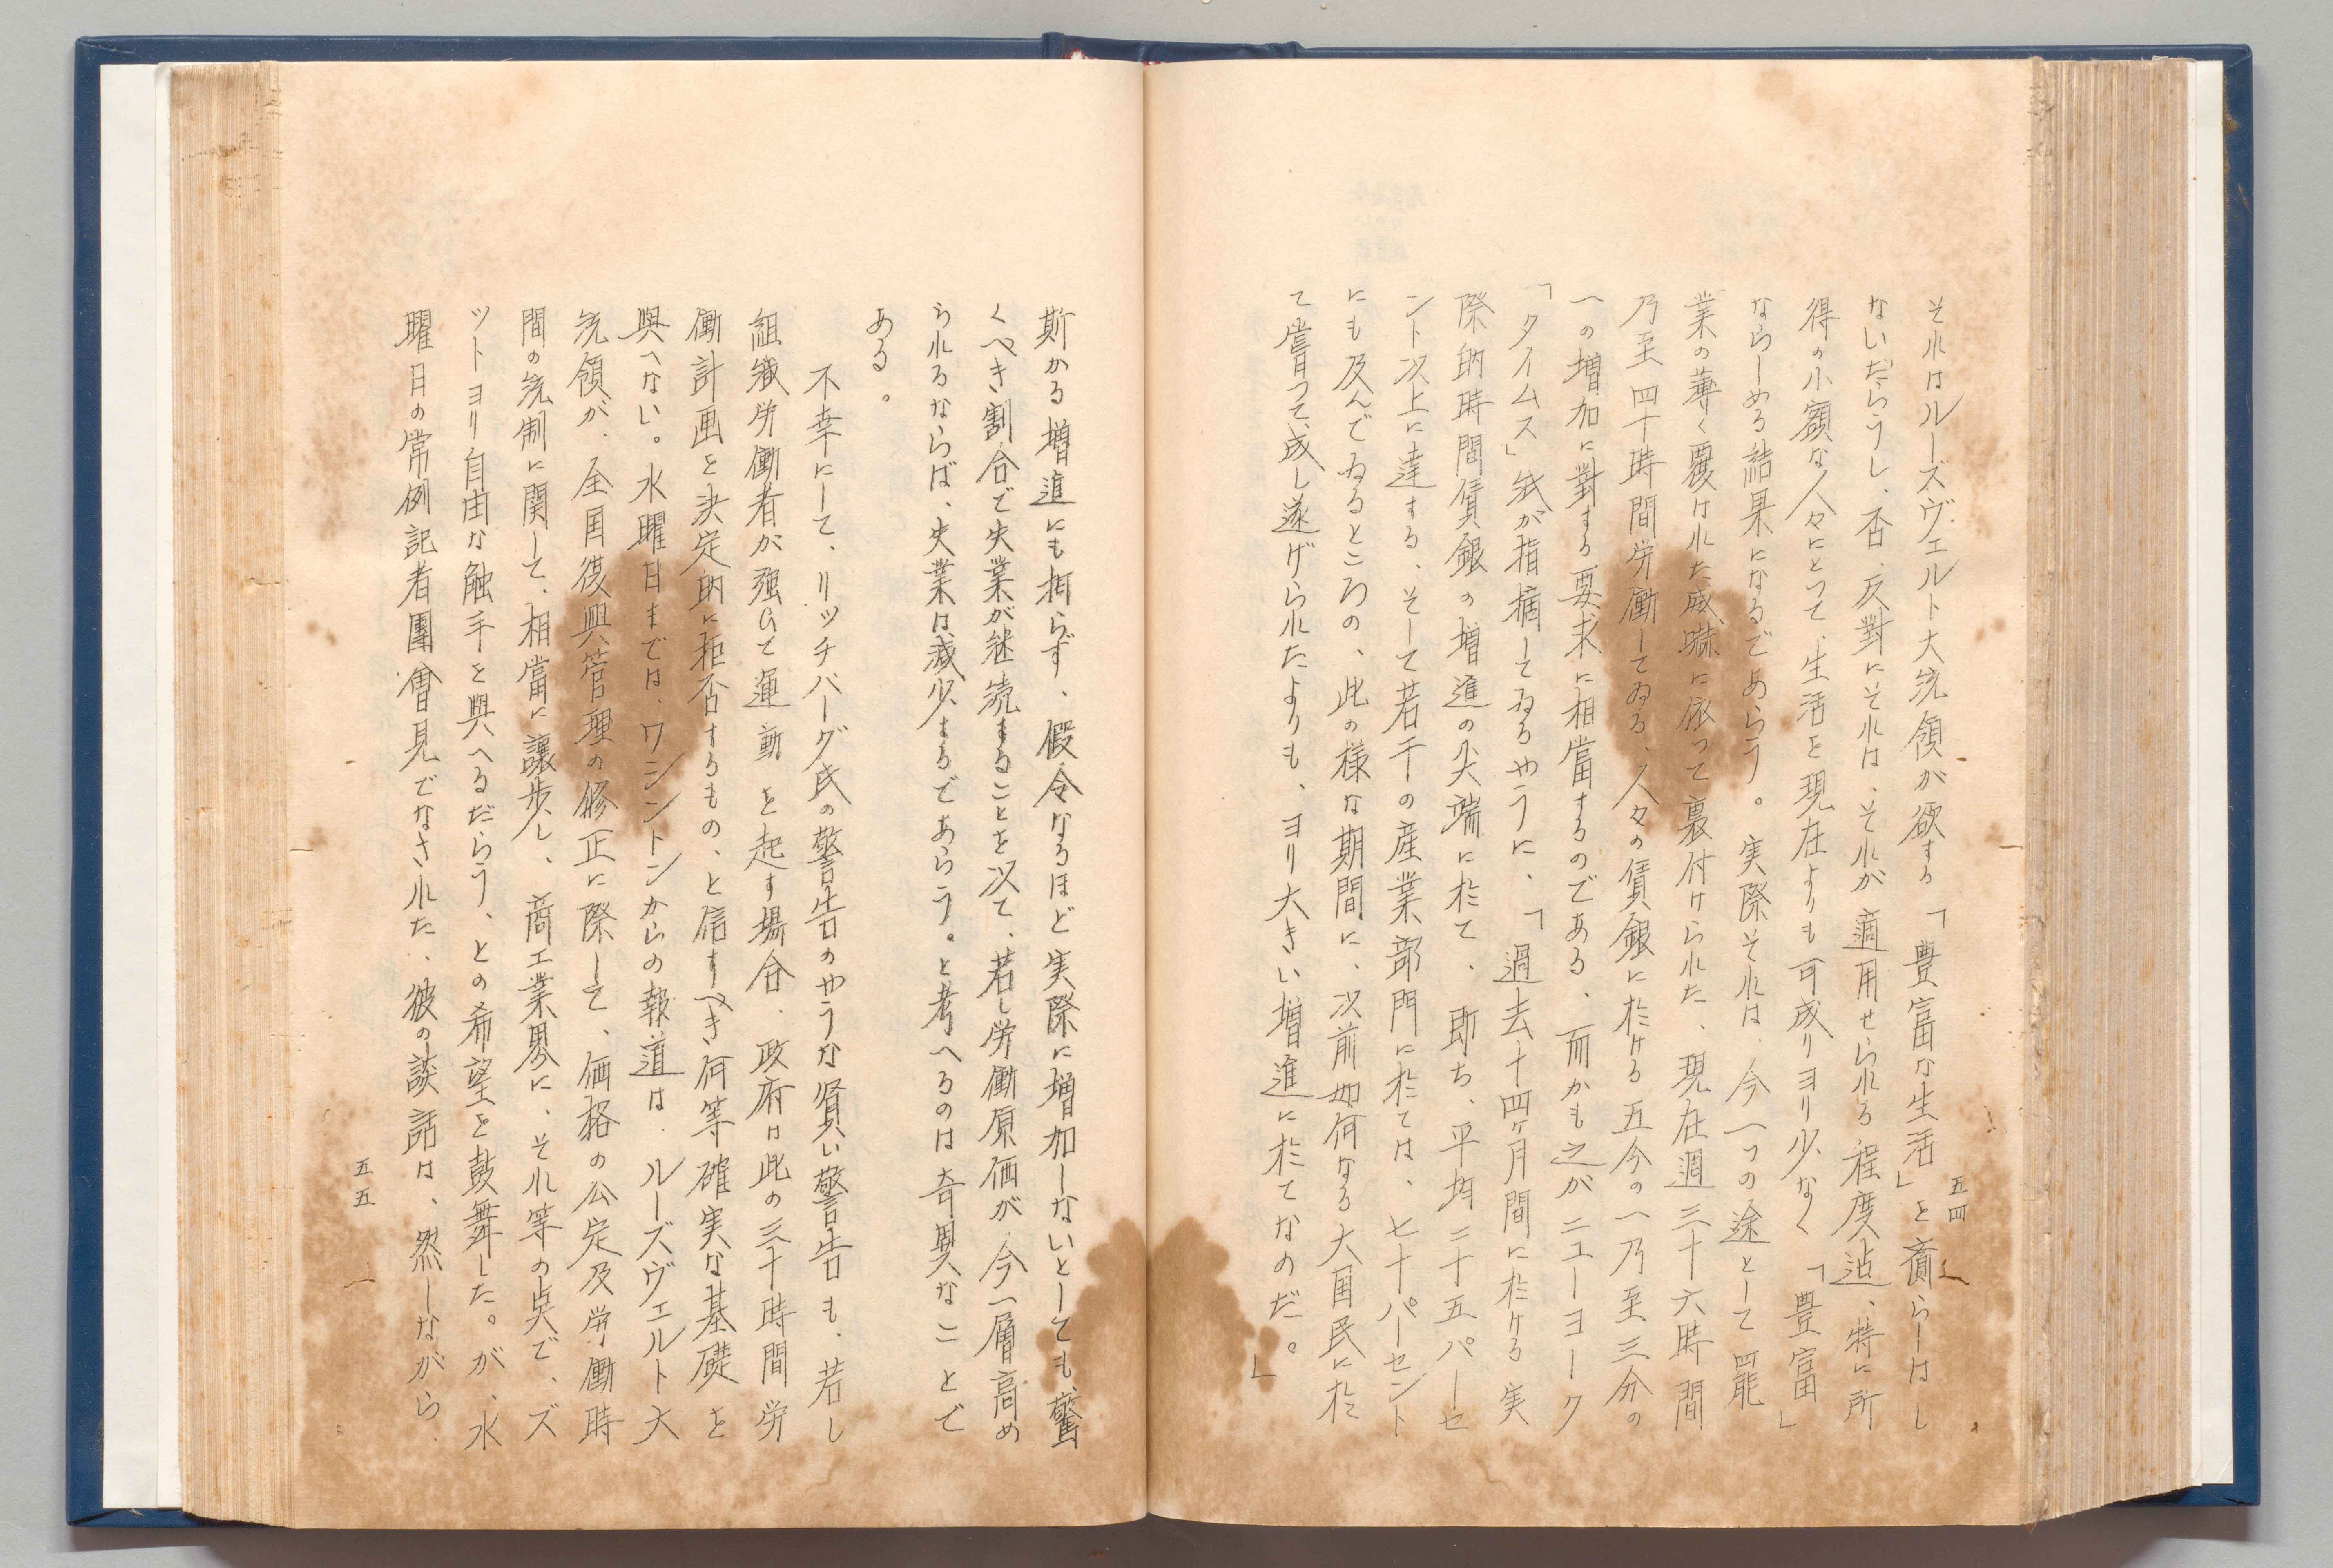 五四
それはルーズヴェルト大統領が欲する「豊富な生活」を齎らしはし
ないだらうし、否、反對にそれは、それが適用せられる程度迠、特に所
得の小額な人々にとつて、生活を現在よりも可成りヨリ少なく「豊富」
ならしめる結果になるであらう。実際それは、今一つの途として罷
業の薄く覆はれた威嚇に依つて裏付けられた、現在週三十六時間
乃至四十時間労働してゐる、人々の賃銀に於ける五分の一乃至三分の
一の増加に對する要求に相當するのである、而かも之がニューヨーク
「タイムス」紙が指摘してゐるやうに、「過去十四ヶ月間に於ける実
際的時間賃銀の増進の尖端に於て、即ち、平均二十五パーセ
ント以上に達する、そして若干の産業部門に於ては、七十パーセント
にも及んでゐるところの、此の様な期間に、以前如何なる大国民に於
て嘗つて、成し遂げられたよりも、ヨリ大きい増進に於てなのだ。」
斯かる増進にも拘らず、假令なるほど実際に増加しないとしても、驚
くべき割合で失業が継続することを以て、若し労働原価が、今一層高め
られるならば、失業は減少するであらう。と考へるのは奇異なことで
ある。
不幸にして、リッチバーグ氏の警告のやうな賢い警告も、若し
組織労働者が強ひて運動を起す場合、政府は此の三十時間労
働計画を決定的に拒否するもの、と信すべき何等確実な基礎を
與へない。水曜日までは、ワシントンからの報道は、ルーズヴェルト大
統領が、全国復興管理の修正に際して、価格の公定及労働時
間の統制に関して、相當に譲歩し、商工業界に、それ等の㸃で、ズ
ットヨリ自由な触手を與へるだらう、との希望を鼓舞した。が、水
曜日の常例記者團會見でなされた、彼の談話は、然しながら、
五五